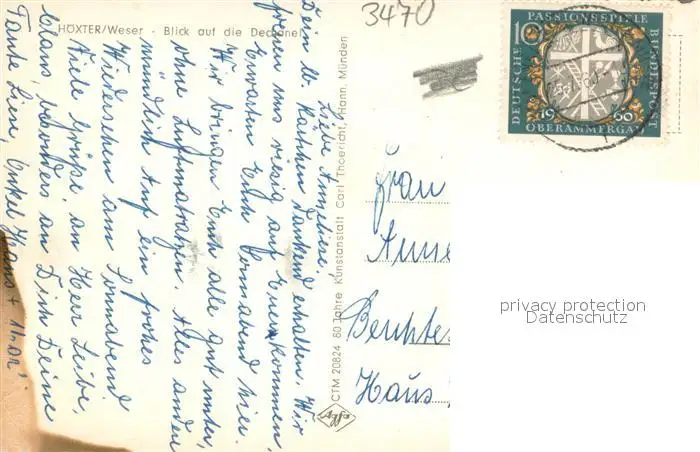 HÖXTER/Weser - Blick auf die Dechanei
3470
Liebe Annliese,
Dein u. Käthchen dankend erhalten. Wir
freuen uns riesig auf Euer kommen,
Erwarten Euch Sonnabend hier.
Wir bringen Euch alle gut unter,
ohne Luftmatratzen. Alles andere
mündlich. Auf ein frohes
Wiedersehen am Sonnabend
Viele Grüße, an Herr Leibe,
Claus, besonders an Dich Deine
Tante Lien, Onkel Hans +
CTM 20824 80 Jahre Kunstanstalt Carl Thoericht, Hann. Münden
Agfa
Frau
Anne
Berchte
Haus
10
PASSIONSSPIELE
DEUTSCHE
BUNDESPOST
1960
OBERAMMERGAU
privacy protection
Datenschutz